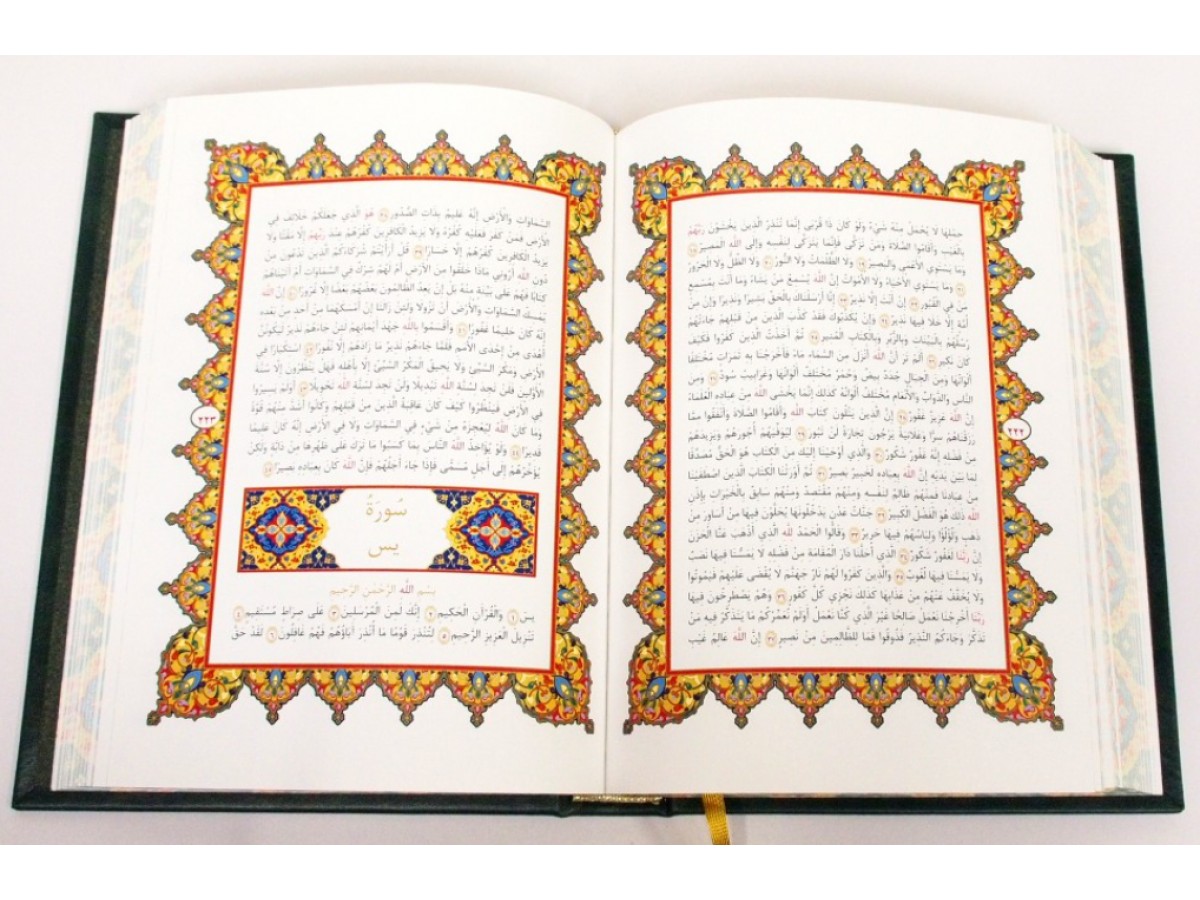 حِمْلِهَا لَا يُحْمَلْ مِنْهُ شَيْءٌ وَلَوْ كَانَ ذَا قُرْبَى إِنَّمَا تُنْذِرُ الَّذِينَ يَخْشَوْنَ رَبَّهُمْ
بِالْغَيْبِ وَأَقَامُوا الصَّلَاةَ وَمَنْ تَزَكَّى فَإِنَّمَا يَتَزَكَّى لِنَفْسِهِ وَإِلَى اللَّهِ الْمَصِيرُ ١٨
وَمَا يَسْتَوِي الْأَعْمَى وَالْبَصِيرُ ١٩ وَلَا الظُّلُمَاتُ وَلَا النُّورُ ٢٠ وَلَا الظِّلُّ وَلَا الْحَرُورُ
٢١ وَمَا يَسْتَوِي الْأَحْيَاءُ وَلَا الْأَمْوَاتُ إِنَّ اللَّهَ يُسْمِعُ مَنْ يَشَاءُ وَمَا أَنْتَ بِمُسْمِعٍ
مَنْ فِي الْقُبُورِ ٢٢ إِنْ أَنْتَ إِلَّا نَذِيرٌ ٢٣ إِنَّا أَرْسَلْنَاكَ بِالْحَقِّ بَشِيرًا وَنَذِيرًا وَإِنْ مِنْ
أُمَّةٍ إِلَّا خَلَا فِيهَا نَذِيرٌ ٢٤ وَإِنْ يُكَذِّبُوكَ فَقَدْ كَذَّبَ الَّذِينَ مِنْ قَبْلِهِمْ جَاءَتْهُمْ
رُسُلُهُمْ بِالْبَيِّنَاتِ وَبِالزُّبُرِ وَبِالْكِتَابِ الْمُنِيرِ ٢٥ ثُمَّ أَخَذْتُ الَّذِينَ كَفَرُوا فَكَيْفَ
كَانَ نَكِيرِ ٢٦ أَلَمْ تَرَ أَنَّ اللَّهَ أَنْزَلَ مِنَ السَّمَاءِ مَاءً فَأَخْرَجْنَا بِهِ ثَمَرَاتٍ مُخْتَلِفًا
أَلْوَانُهَا وَمِنَ الْجِبَالِ جُدَدٌ بِيضٌ وَحُمْرٌ مُخْتَلِفٌ أَلْوَانُهَا وَغَرَابِيبُ سُودٌ ٢٧ وَمِنَ
النَّاسِ وَالدَّوَابِّ وَالْأَنْعَامِ مُخْتَلِفٌ أَلْوَانُهُ كَذَلِكَ إِنَّمَا يَخْشَى اللَّهَ مِنْ عِبَادِهِ الْعُلَمَاءُ
إِنَّ اللَّهَ عَزِيزٌ غَفُورٌ ٢٨ إِنَّ الَّذِينَ يَتْلُونَ كِتَابَ اللَّهِ وَأَقَامُوا الصَّلَاةَ وَأَنْفَقُوا مِمَّا
رَزَقْنَاهُمْ سِرًّا وَعَلَانِيَةً يَرْجُونَ تِجَارَةً لَنْ تَبُورَ ٢٩ لِيُوَفِّيَهُمْ أُجُورَهُمْ وَيَزِيدَهُمْ
مِنْ فَضْلِهِ إِنَّهُ غَفُورٌ شَكُورٌ ٣٠ وَالَّذِي أَوْحَيْنَا إِلَيْكَ مِنَ الْكِتَابِ هُوَ الْحَقُّ مُصَدِّقًا
لِمَا بَيْنَ يَدَيْهِ إِنَّ اللَّهَ بِعِبَادِهِ لَخَبِيرٌ بَصِيرٌ ٣١ ثُمَّ أَوْرَثْنَا الْكِتَابَ الَّذِينَ اصْطَفَيْنَا
مِنْ عِبَادِنَا فَمِنْهُمْ ظَالِمٌ لِنَفْسِهِ وَمِنْهُمْ مُقْتَصِدٌ وَمِنْهُمْ سَابِقٌ بِالْخَيْرَاتِ بِإِذْنِ
اللَّهِ ذَلِكَ هُوَ الْفَضْلُ الْكَبِيرُ ٣٢ جَنَّاتُ عَدْنٍ يَدْخُلُونَهَا يُحَلَّوْنَ فِيهَا مِنْ أَسَاوِرَ مِنْ
ذَهَبٍ وَلُؤْلُؤًا وَلِبَاسُهُمْ فِيهَا حَرِيرٌ ٣٣ وَقَالُوا الْحَمْدُ لِلَّهِ الَّذِي أَذْهَبَ عَنَّا الْحَزَنَ
إِنَّ رَبَّنَا لَغَفُورٌ شَكُورٌ ٣٤ الَّذِي أَحَلَّنَا دَارَ الْمُقَامَةِ مِنْ فَضْلِهِ لَا يَمَسُّنَا فِيهَا نَصَبٌ
وَلَا يَمَسُّنَا فِيهَا لُغُوبٌ ٣٥ وَالَّذِينَ كَفَرُوا لَهُمْ نَارُ جَهَنَّمَ لَا يُقْضَى عَلَيْهِمْ فَيَمُوتُوا
وَلَا يُخَفَّفُ عَنْهُمْ مِنْ عَذَابِهَا كَذَلِكَ نَجْزِي كُلَّ كَفُورٍ ٣٦ وَهُمْ يَصْطَرِخُونَ فِيهَا
رَبَّنَا أَخْرِجْنَا نَعْمَلْ صَالِحًا غَيْرَ الَّذِي كُنَّا نَعْمَلُ أَوَلَمْ نُعَمِّرْكُمْ مَا يَتَذَكَّرُ فِيهِ مَنْ
تَذَكَّرَ وَجَاءَكُمُ النَّذِيرُ فَذُوقُوا فَمَا لِلظَّالِمِينَ مِنْ نَصِيرٍ ٣٧ إِنَّ اللَّهَ عَالِمُ غَيْبِ
٢٢٢
السَّمَاوَاتِ وَالْأَرْضِ إِنَّهُ عَلِيمٌ بِذَاتِ الصُّدُورِ ٣٨ هُوَ الَّذِي جَعَلَكُمْ خَلَائِفَ فِي
الْأَرْضِ فَمَنْ كَفَرَ فَعَلَيْهِ كُفْرُهُ وَلَا يَزِيدُ الْكَافِرِينَ كُفْرُهُمْ عِنْدَ رَبِّهِمْ إِلَّا مَقْتًا وَلَا
يَزِيدُ الْكَافِرِينَ كُفْرُهُمْ إِلَّا خَسَارًا ٣٩ قُلْ أَرَأَيْتُمْ شُرَكَاءَكُمُ الَّذِينَ تَدْعُونَ مِنْ
دُونِ اللَّهِ أَرُونِي مَاذَا خَلَقُوا مِنَ الْأَرْضِ أَمْ لَهُمْ شِرْكٌ فِي السَّمَاوَاتِ أَمْ آتَيْنَاهُمْ
كِتَابًا فَهُمْ عَلَى بَيِّنَةٍ مِنْهُ بَلْ إِنْ يَعِدُ الظَّالِمُونَ بَعْضُهُمْ بَعْضًا إِلَّا غُرُورًا ٤٠ إِنَّ اللَّهَ
يُمْسِكُ السَّمَاوَاتِ وَالْأَرْضَ أَنْ تَزُولَا وَلَئِنْ زَالَتَا إِنْ أَمْسَكَهُمَا مِنْ أَحَدٍ مِنْ بَعْدِهِ
إِنَّهُ كَانَ حَلِيمًا غَفُورًا ٤١ وَأَقْسَمُوا بِاللَّهِ جَهْدَ أَيْمَانِهِمْ لَئِنْ جَاءَهُمْ نَذِيرٌ لَيَكُونُنَّ
أَهْدَى مِنْ إِحْدَى الْأُمَمِ فَلَمَّا جَاءَهُمْ نَذِيرٌ مَا زَادَهُمْ إِلَّا نُفُورًا ٤٢ اسْتِكْبَارًا فِي
الْأَرْضِ وَمَكْرَ السَّيِّئِ وَلَا يَحِيقُ الْمَكْرُ السَّيِّئُ إِلَّا بِأَهْلِهِ فَهَلْ يَنْظُرُونَ إِلَّا سُنَّةَ
الْأَوَّلِينَ فَلَنْ تَجِدَ لِسُنَّةِ اللَّهِ تَبْدِيلًا وَلَنْ تَجِدَ لِسُنَّةِ اللَّهِ تَحْوِيلًا ٤٣ أَوَلَمْ يَسِيرُوا
فِي الْأَرْضِ فَيَنْظُرُوا كَيْفَ كَانَ عَاقِبَةُ الَّذِينَ مِنْ قَبْلِهِمْ وَكَانُوا أَشَدَّ مِنْهُمْ قُوَّةً
وَمَا كَانَ اللَّهُ لِيُعْجِزَهُ مِنْ شَيْءٍ فِي السَّمَاوَاتِ وَلَا فِي الْأَرْضِ إِنَّهُ كَانَ عَلِيمًا
قَدِيرًا ٤٤ وَلَوْ يُؤَاخِذُ اللَّهُ النَّاسَ بِمَا كَسَبُوا مَا تَرَكَ عَلَى ظَهْرِهَا مِنْ دَابَّةٍ وَلَكِنْ
يُؤَخِّرُهُمْ إِلَى أَجَلٍ مُسَمًّى فَإِذَا جَاءَ أَجَلُهُمْ فَإِنَّ اللَّهَ كَانَ بِعِبَادِهِ بَصِيرًا ٤٥
سُورَةُ
يس
بِسْمِ اللَّهِ الرَّحْمَنِ الرَّحِيمِ
يس ١ وَالْقُرْآنِ الْحَكِيمِ ٢ إِنَّكَ لَمِنَ الْمُرْسَلِينَ ٣ عَلَى صِرَاطٍ مُسْتَقِيمٍ ٤
تَنْزِيلَ الْعَزِيزِ الرَّحِيمِ ٥ لِتُنْذِرَ قَوْمًا مَا أُنْذِرَ آبَاؤُهُمْ فَهُمْ غَافِلُونَ ٦ لَقَدْ حَقَّ
٢٢٣